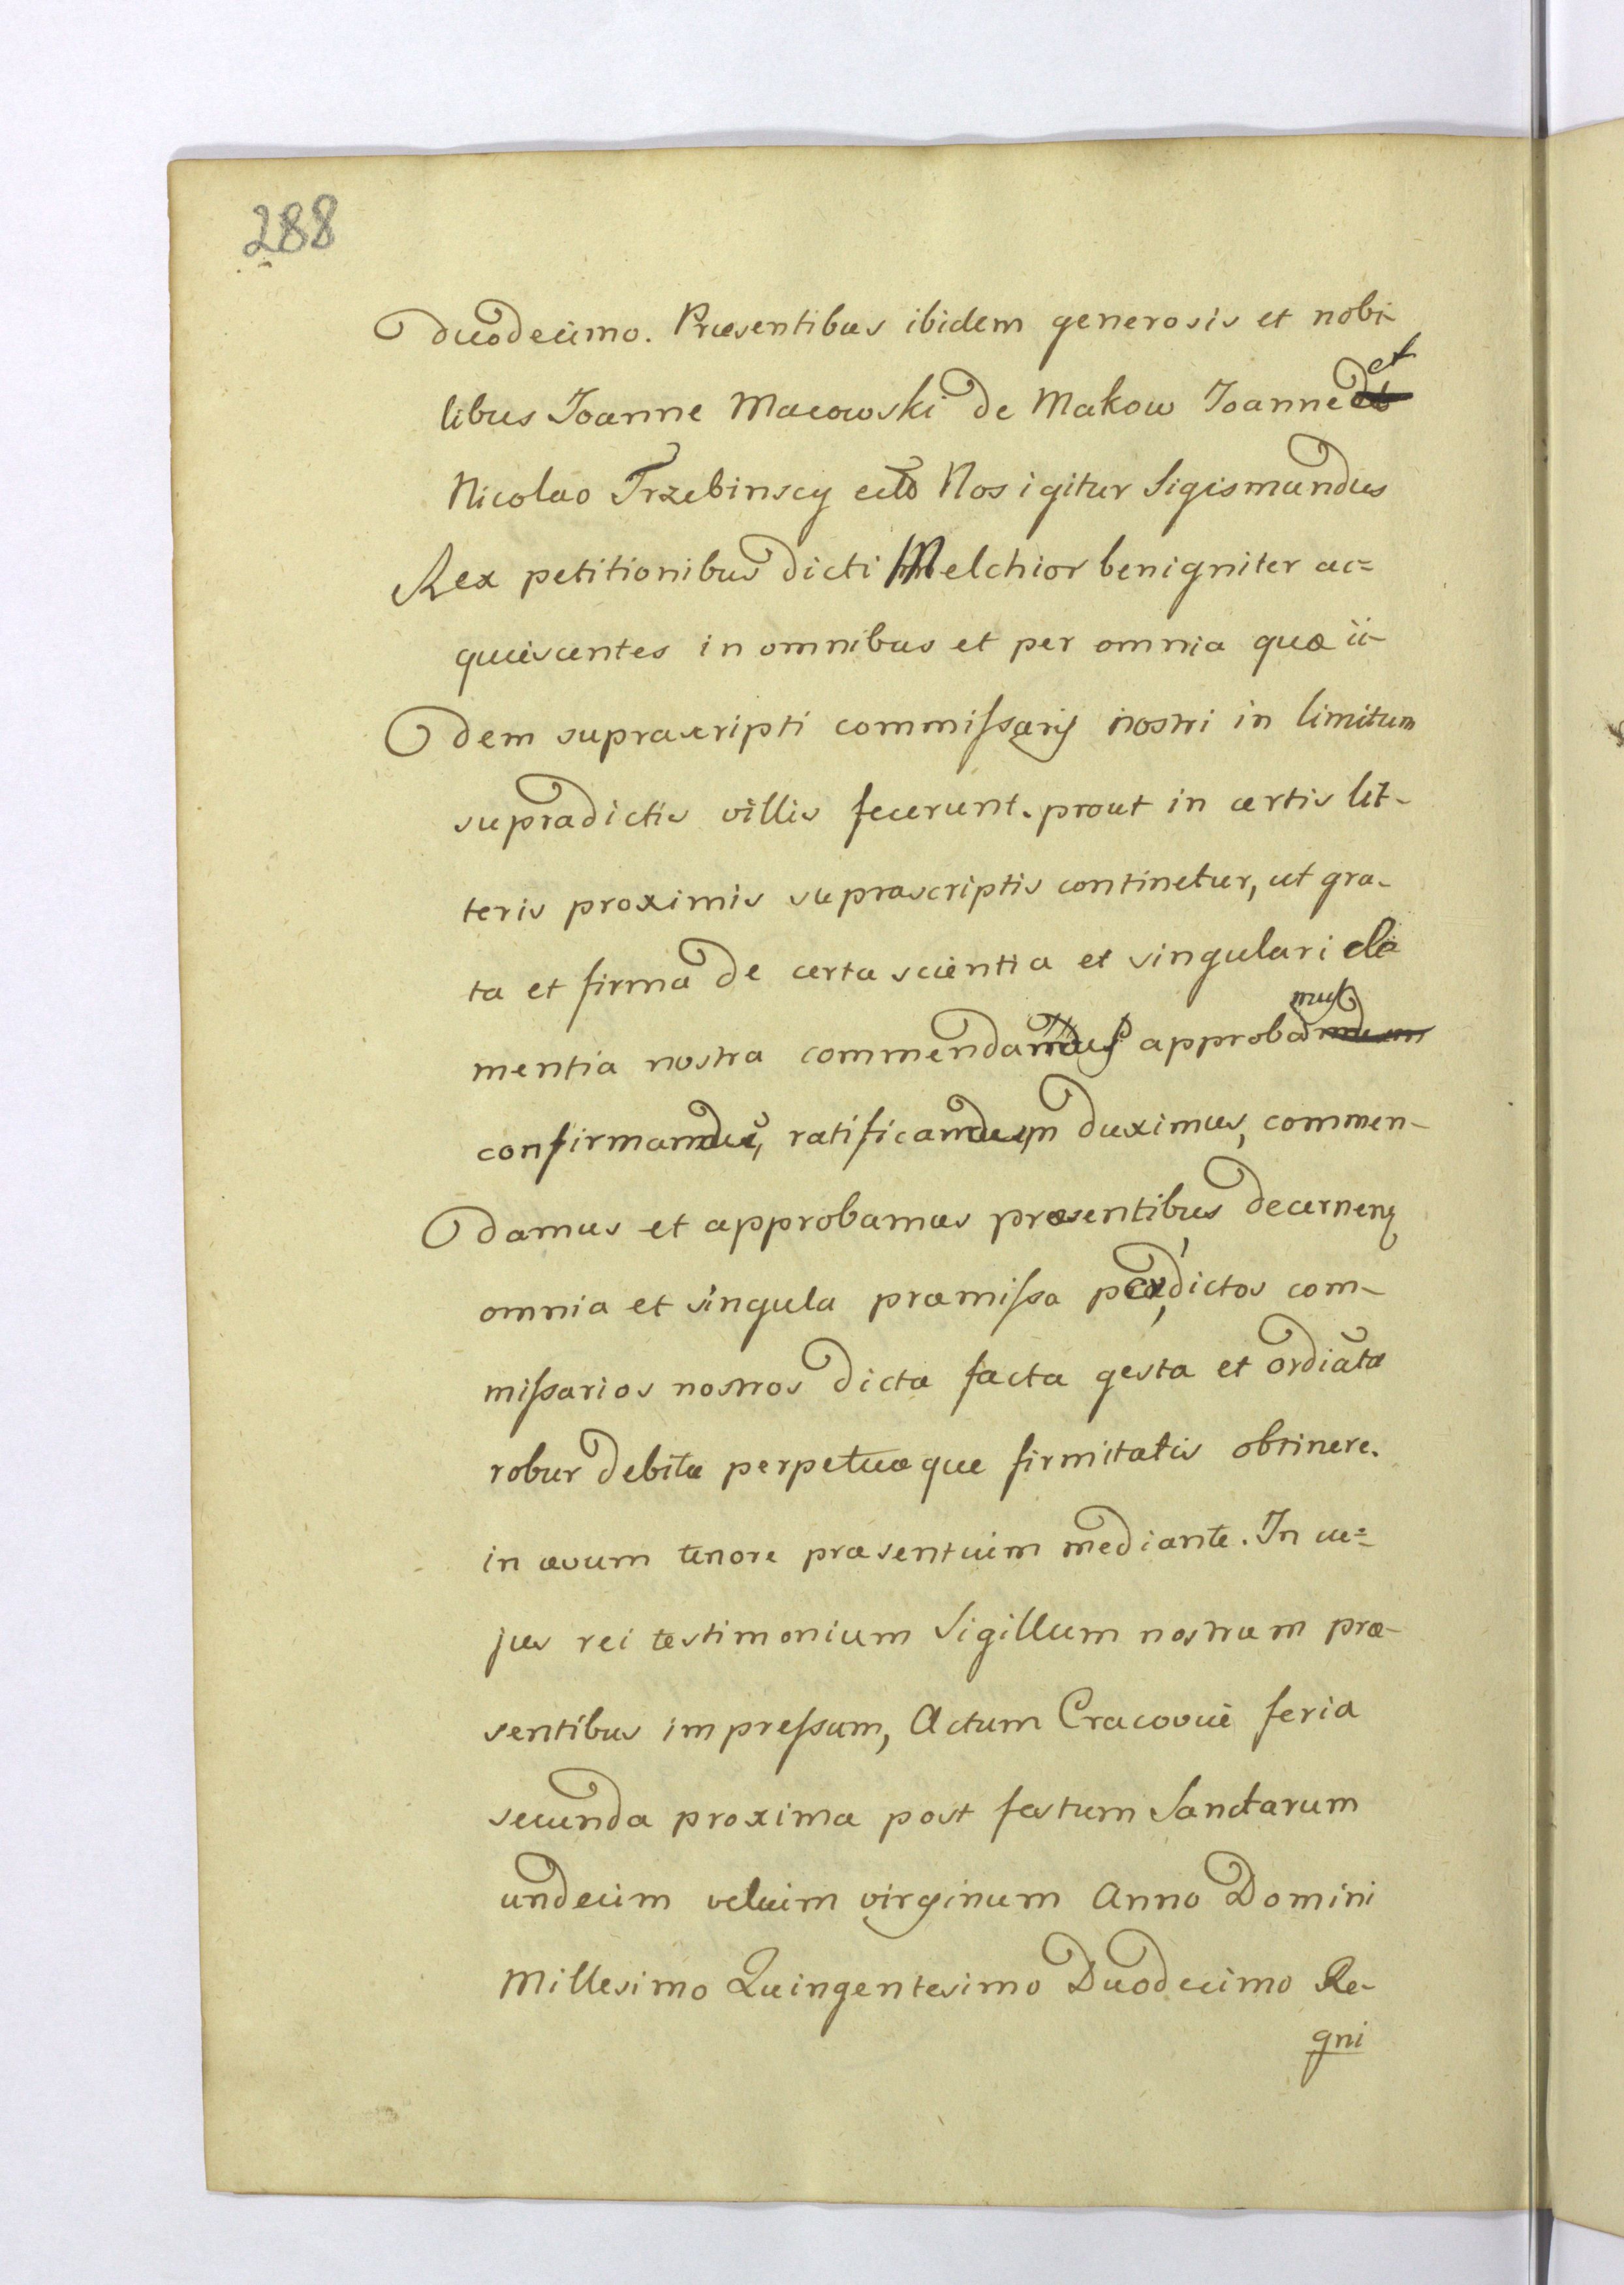 288
duodecimo. Præsentibus ibidem generosis et nobi-
libus Joanne Macowski de Makow Joanne et
Nicolao Trzebinscy Nos igitur Sigismundus
Rex petitionibus dicti Melchior benigniter ac=
quiescentes in omnibus et per omnia quæ ii-
dem suprascripti commissarij nostri in limitum
supradictis villis fecerunt. prout in certis lit-
teris proximis suprascriptis continetur, ut gra-
ta et firma de certa scientia et singulari cle
mentia nostra approbamus
ratificandum duximus, commen-
damus et approbamus præsentibus decernenq
omnia et singula præmissa dictos com-
missarios nostros dicta facta gesta et ordiãta
robur debitæ perpetuæque firmitatis obtinere.
in ævum tenore præsentium mediante. In cu=
jus rei testimonium Sigillum nostrum præ-
sentibus impressum, Actum Cracoviæ feria
secunda proxima post festum Sanctarum
undecim virginum Anno Domini
Millesimo Quingentesimo Duodecimo Re-
gni